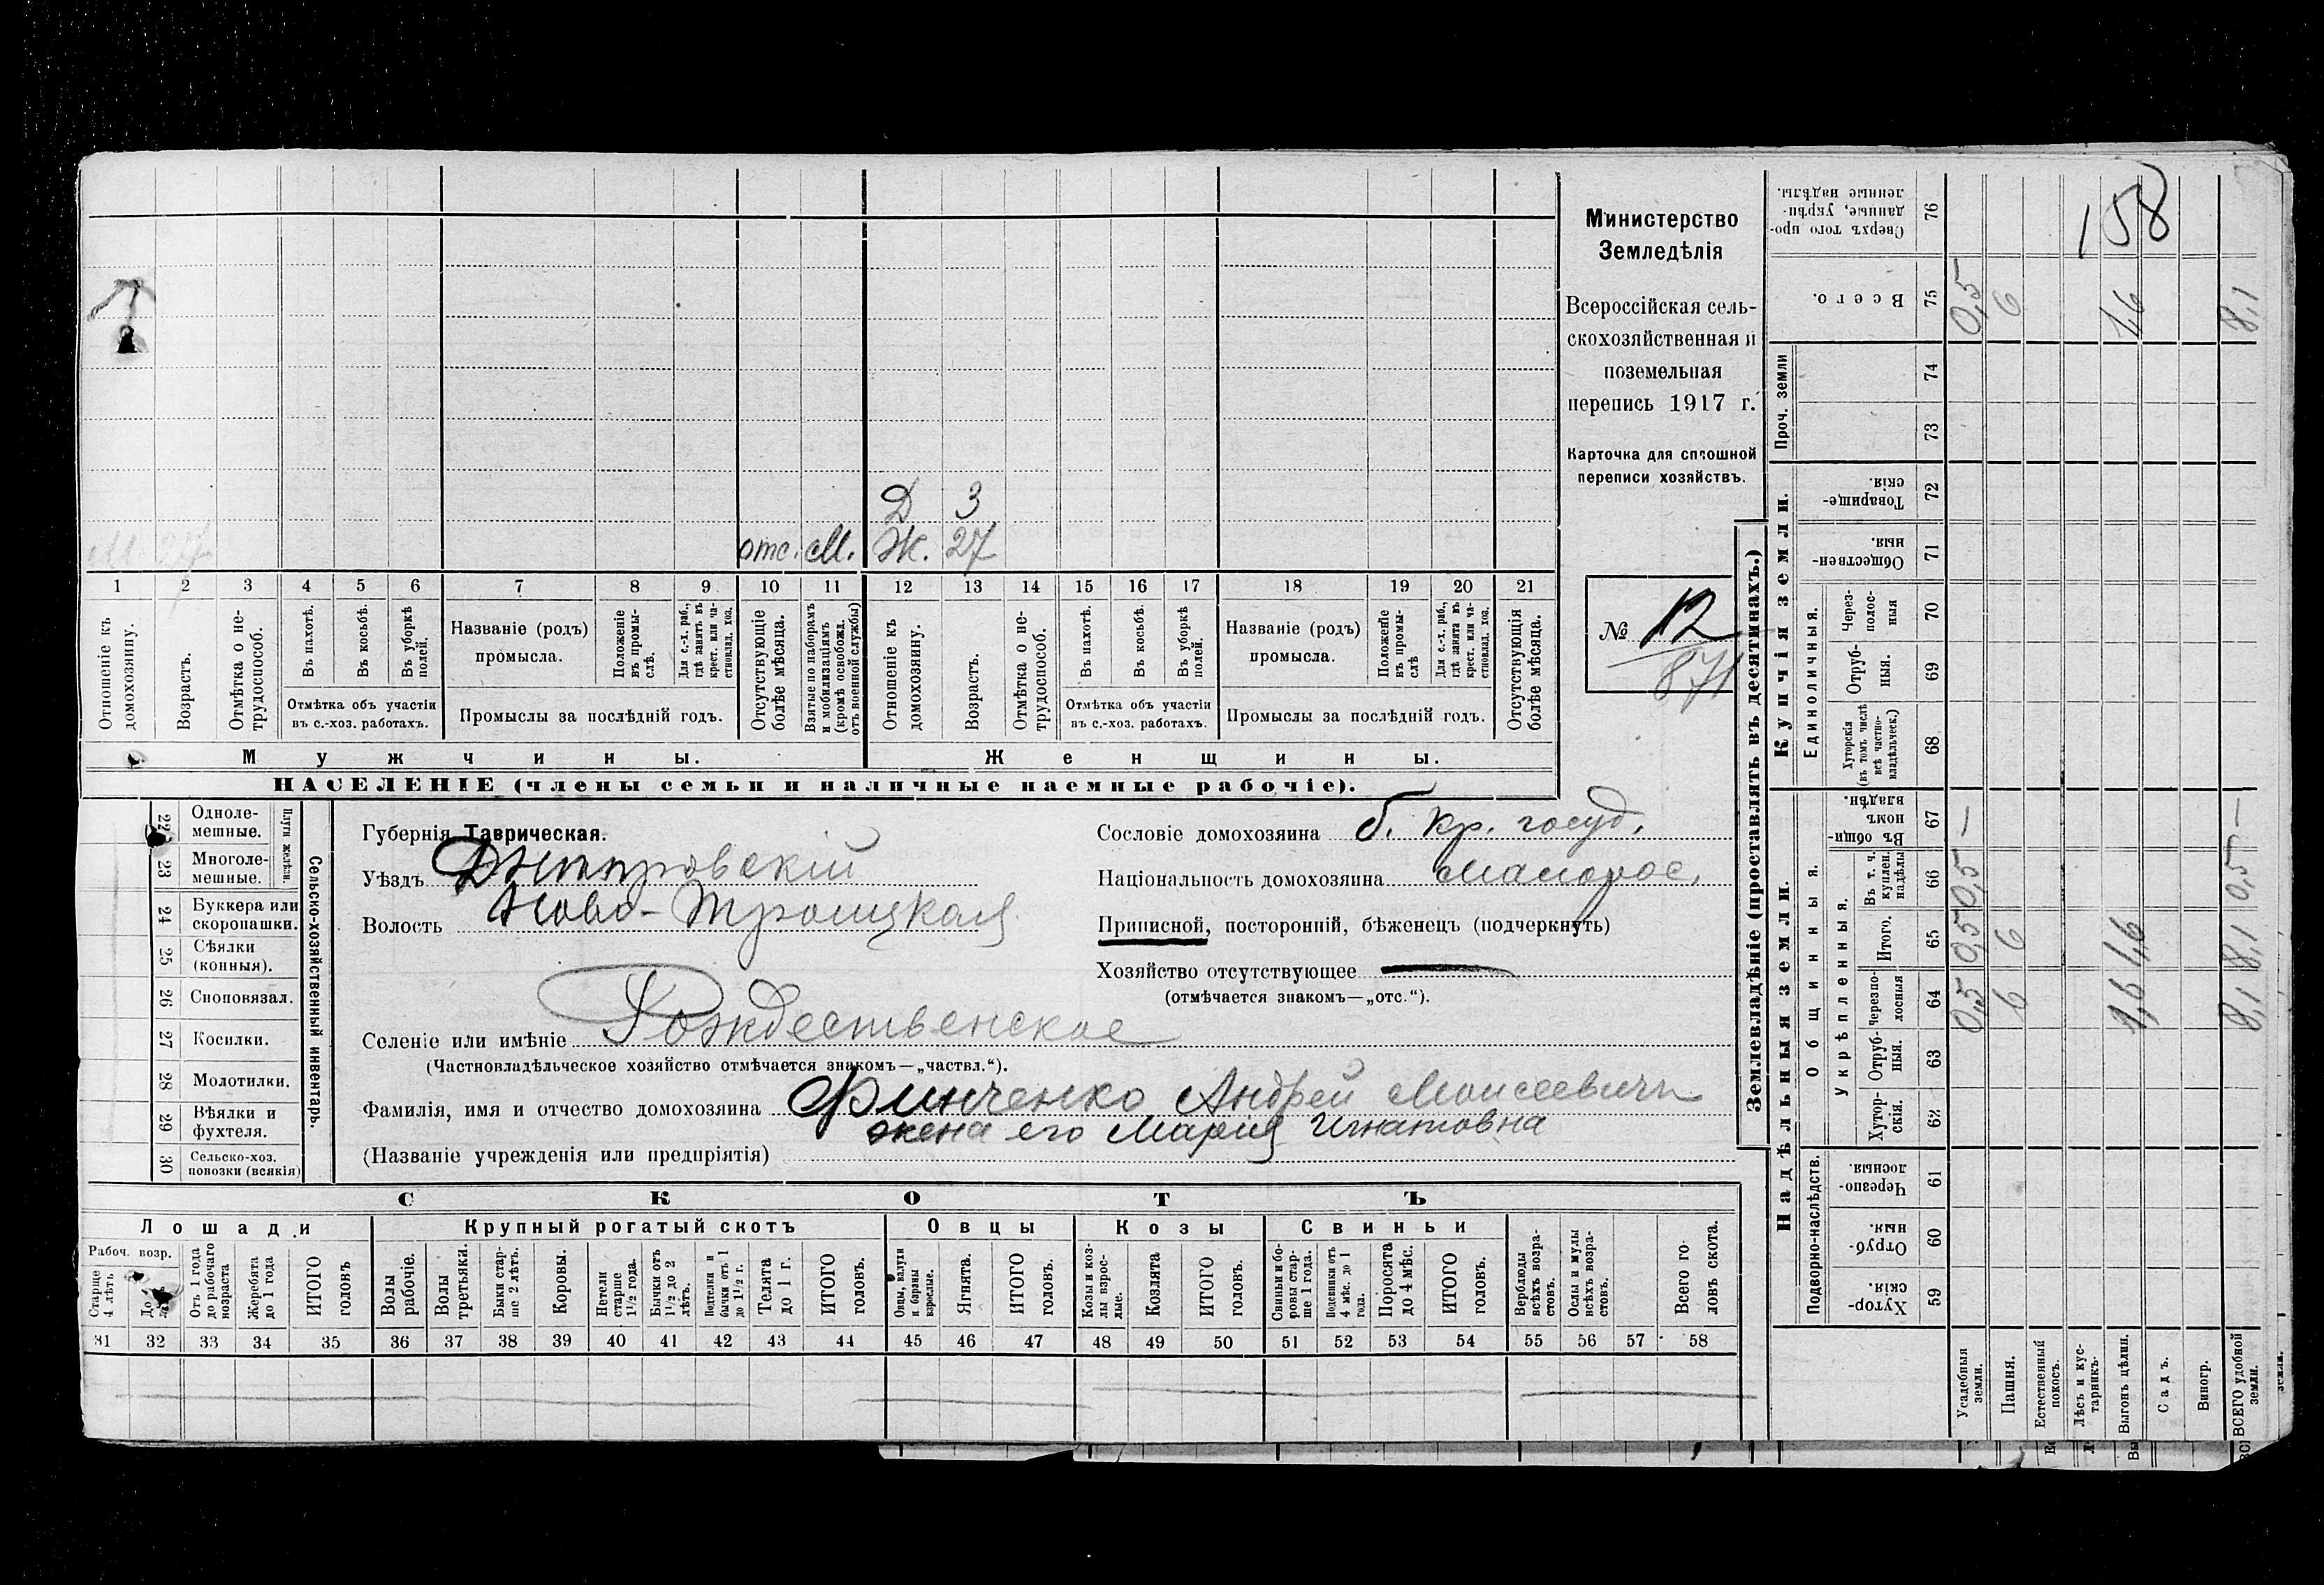 Д 3
М. 27 отс. М. Ж. 27
1 2 3 4 5 6 7 8 9 10 11 12 13 14 15 16 17 18 19 20 21
Отношеніе къ домохозяину.
Возрастъ.
Отмѣтка о нетрудоспособ.
Въ пахотѣ.
Въ косьбѣ.
Въ уборкѣ полей.
Отмѣтка объ участіи
въ с.-хоз. работахъ.
Названіе (родъ)
промысла.
Положеніе въ промыслѣ.
Для с.-х. раб., гдѣ занятъ въ крест. или частновлад. хоз.
Промыслы за послѣдній годъ.
Отсутствующіе болѣе мѣсяца.
Взятые по наборамъ и мобилизаціямъ (кромѣ освобожд. отъ военной службы)
Отношеніе къ домохозяину.
Возрастъ.
Отмѣтка о нетрудоспособ.
Въ пахотѣ.
Въ косьбѣ.
Въ уборкѣ полей.
Отмѣтка объ участіи
въ с.-хоз. работахъ.
Названіе (родъ)
промысла.
Положеніе въ промыслѣ
Для с.-х. раб., гдѣ занята въ крест. или частновлад. хоз.
Промыслы за послѣдній годъ.
Отсутствующія болѣе мѣсяца.
Мужчины.
Женщины.
НАСЕЛЕНІЕ (члены семьи и наличные наемные рабочіе).
Министерство
Земледѣлія
Всероссійская сель-
скохозяйственная и
поземельная
перепись 1917 г.
Карточка для сплошной
переписи хозяйствъ.
№ 12
871
Сельско-хозяйственный инвентарь.
Плуги желѣзн.
22 Одноле-
мешные.
23 Многоле-
мешные.
24 Буккера или
скоропашки.
25 Сѣялки
(конныя).
26 Сноповязал.
27 Косилки.
28 Молотилки.
29 Вѣялки и
фухтеля.
30 Сельско-хоз.
повозки (всякія)
Губернія Таврическая.
Уѣздъ Днѣпровскій
Волость Ново-Троицкая
Селеніе или имѣніе Рождественское
(Частновладѣльческое хозяйство отмѣчается знакомъ—„частвл.“).
Фамилія, имя и отчество домохозяина Финченко Андрей Моисеевичъ
жена его Мария Игнатовна
(Названіе учрежденія или предпріятія)
Сословіе домохозяина б. кр. госуд.
Національность домохозяина малорос.
Приписной, посторонній, бѣженецъ (подчеркнуть)
Хозяйство отсутствующее
(отмѣчается знакомъ—„отс.“).
СКОТЪ
Лошади
Рабоч. возр.
Старше 4 лѣтъ
До
Отъ 1 года до рабочаго возраста
Жеребята до 1 года
ИТОГО головъ
Крупный рогатый скотъ
Волы рабочіе.
Волы третьяки.
Быки старше 2 лѣтъ.
Коровы.
Нетели старше 1½ года.
Бычки отъ 1½ до 2 лѣтъ.
Подтелки и бычки отъ 1 до 1½ г.
Телята до 1 г.
ИТОГО головъ.
Овцы
Овцы, валухи и бараны взрослые.
Ягнята.
ИТОГО головъ.
Козы
Козы и козлы взрослые.
Козлята
ИТОГО головъ.
Свиньи
Свиньи и боровы старше 1 года.
Подсвинки отъ 4 мѣс. до 1 года.
Поросята до 4 мѣс.
ИТОГО головъ.
Верблюды всѣхъ возрастовъ.
Ослы и мулы всѣхъ возрастовъ.
Всего головъ скота.
31 32 33 34 35 36 37 38 39 40 41 42 43 44 45 46 47 48 49 50 51 52 53 54 55 56 57 58
Землевладѣніе (проставлять въ десятинахъ.)
Надѣльныя земли.
Подворно-наслѣдств.
Хутор-
скія. 59
Отруб-
ныя. 60
Черезпо-
лосныя. 61
Общинныя.
Укрѣпленныя.
Хутор-
скія. 62
Отруб-
ныя. 63
Черезпо-
лосныя 64 0,5 6 1,6 8,1
Итого. 65 0,5 6 1,6 8,1
Въ т. ч.
куплен.
надѣлы 66 0,5 0,5
Въ общин-
номъ
владѣн. 67 — —
Купчія земли.
Единоличныя.
Хуторскія
(въ томъ числѣ
всѣ частно-
владѣльческ.) 68
Отруб-
ныя. 69
Через-
полос-
ныя 70
Обществен-
ныя. 71
Товарище-
скія. 72
Проч. земли
73
74
Всего. 75 0,5 6 1,6 8,1
Сверхъ того про-
данные, укрѣп-
ленные надѣлы. 76
158
Усадебныя земли.
Пашня.
Естественный покосъ.
Лѣсъ и кустарникъ.
Выгонъ цѣлин.
Садъ.
Виногр.
ВСЕГО удобной земли.